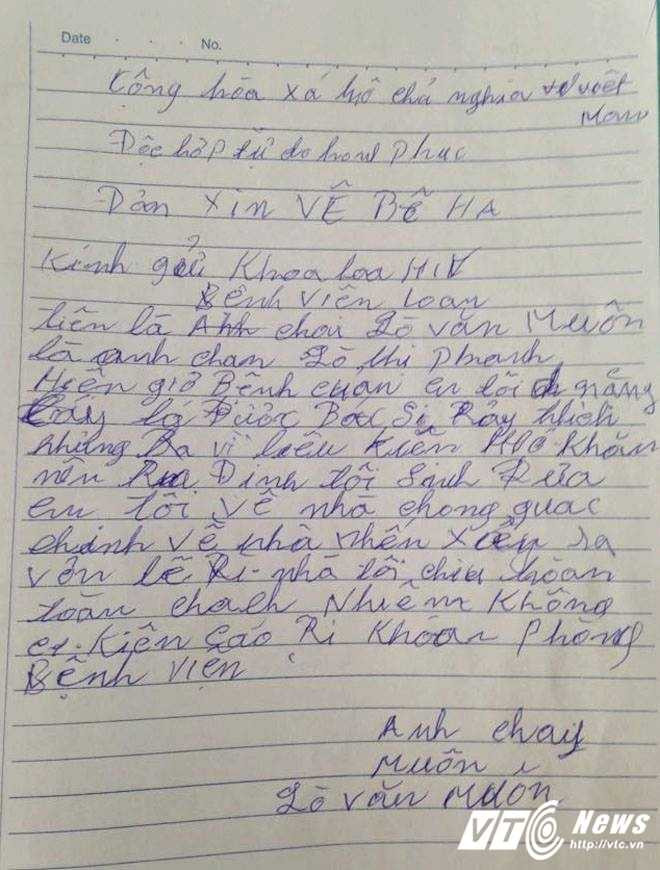 Date . . . No.
Cộng hòa xá hộ chả nghĩa việt
Man
Độc lập tự do hanh Phuc
Đản XIN VỀ BỄ HA
Kính gửi Khoa loa HIV
Bênh viên loan
liên là Anh chai Lò văn Muôn
là anh chan Lò thi Phanh
Hiên giờ Bênh cuan em tôi nặng
là Được Bac Sĩ Ray thích
nhưng Ba vì liêu Kiên Hoc Khăn
nên Rua Đinh tôi Sinh Rưa
em tôi về nhà chong quac
chinh về nhà nhên xảy ra
vớn lề Ri nhà tôi chiu hoan
toàn chach Nhiêm Không
Kiên Cáo Ri Khoan Phòng
Bệnh viện
Anh chay
Muôn
Lò văn Muôn
VTC News
http://vtc.vn